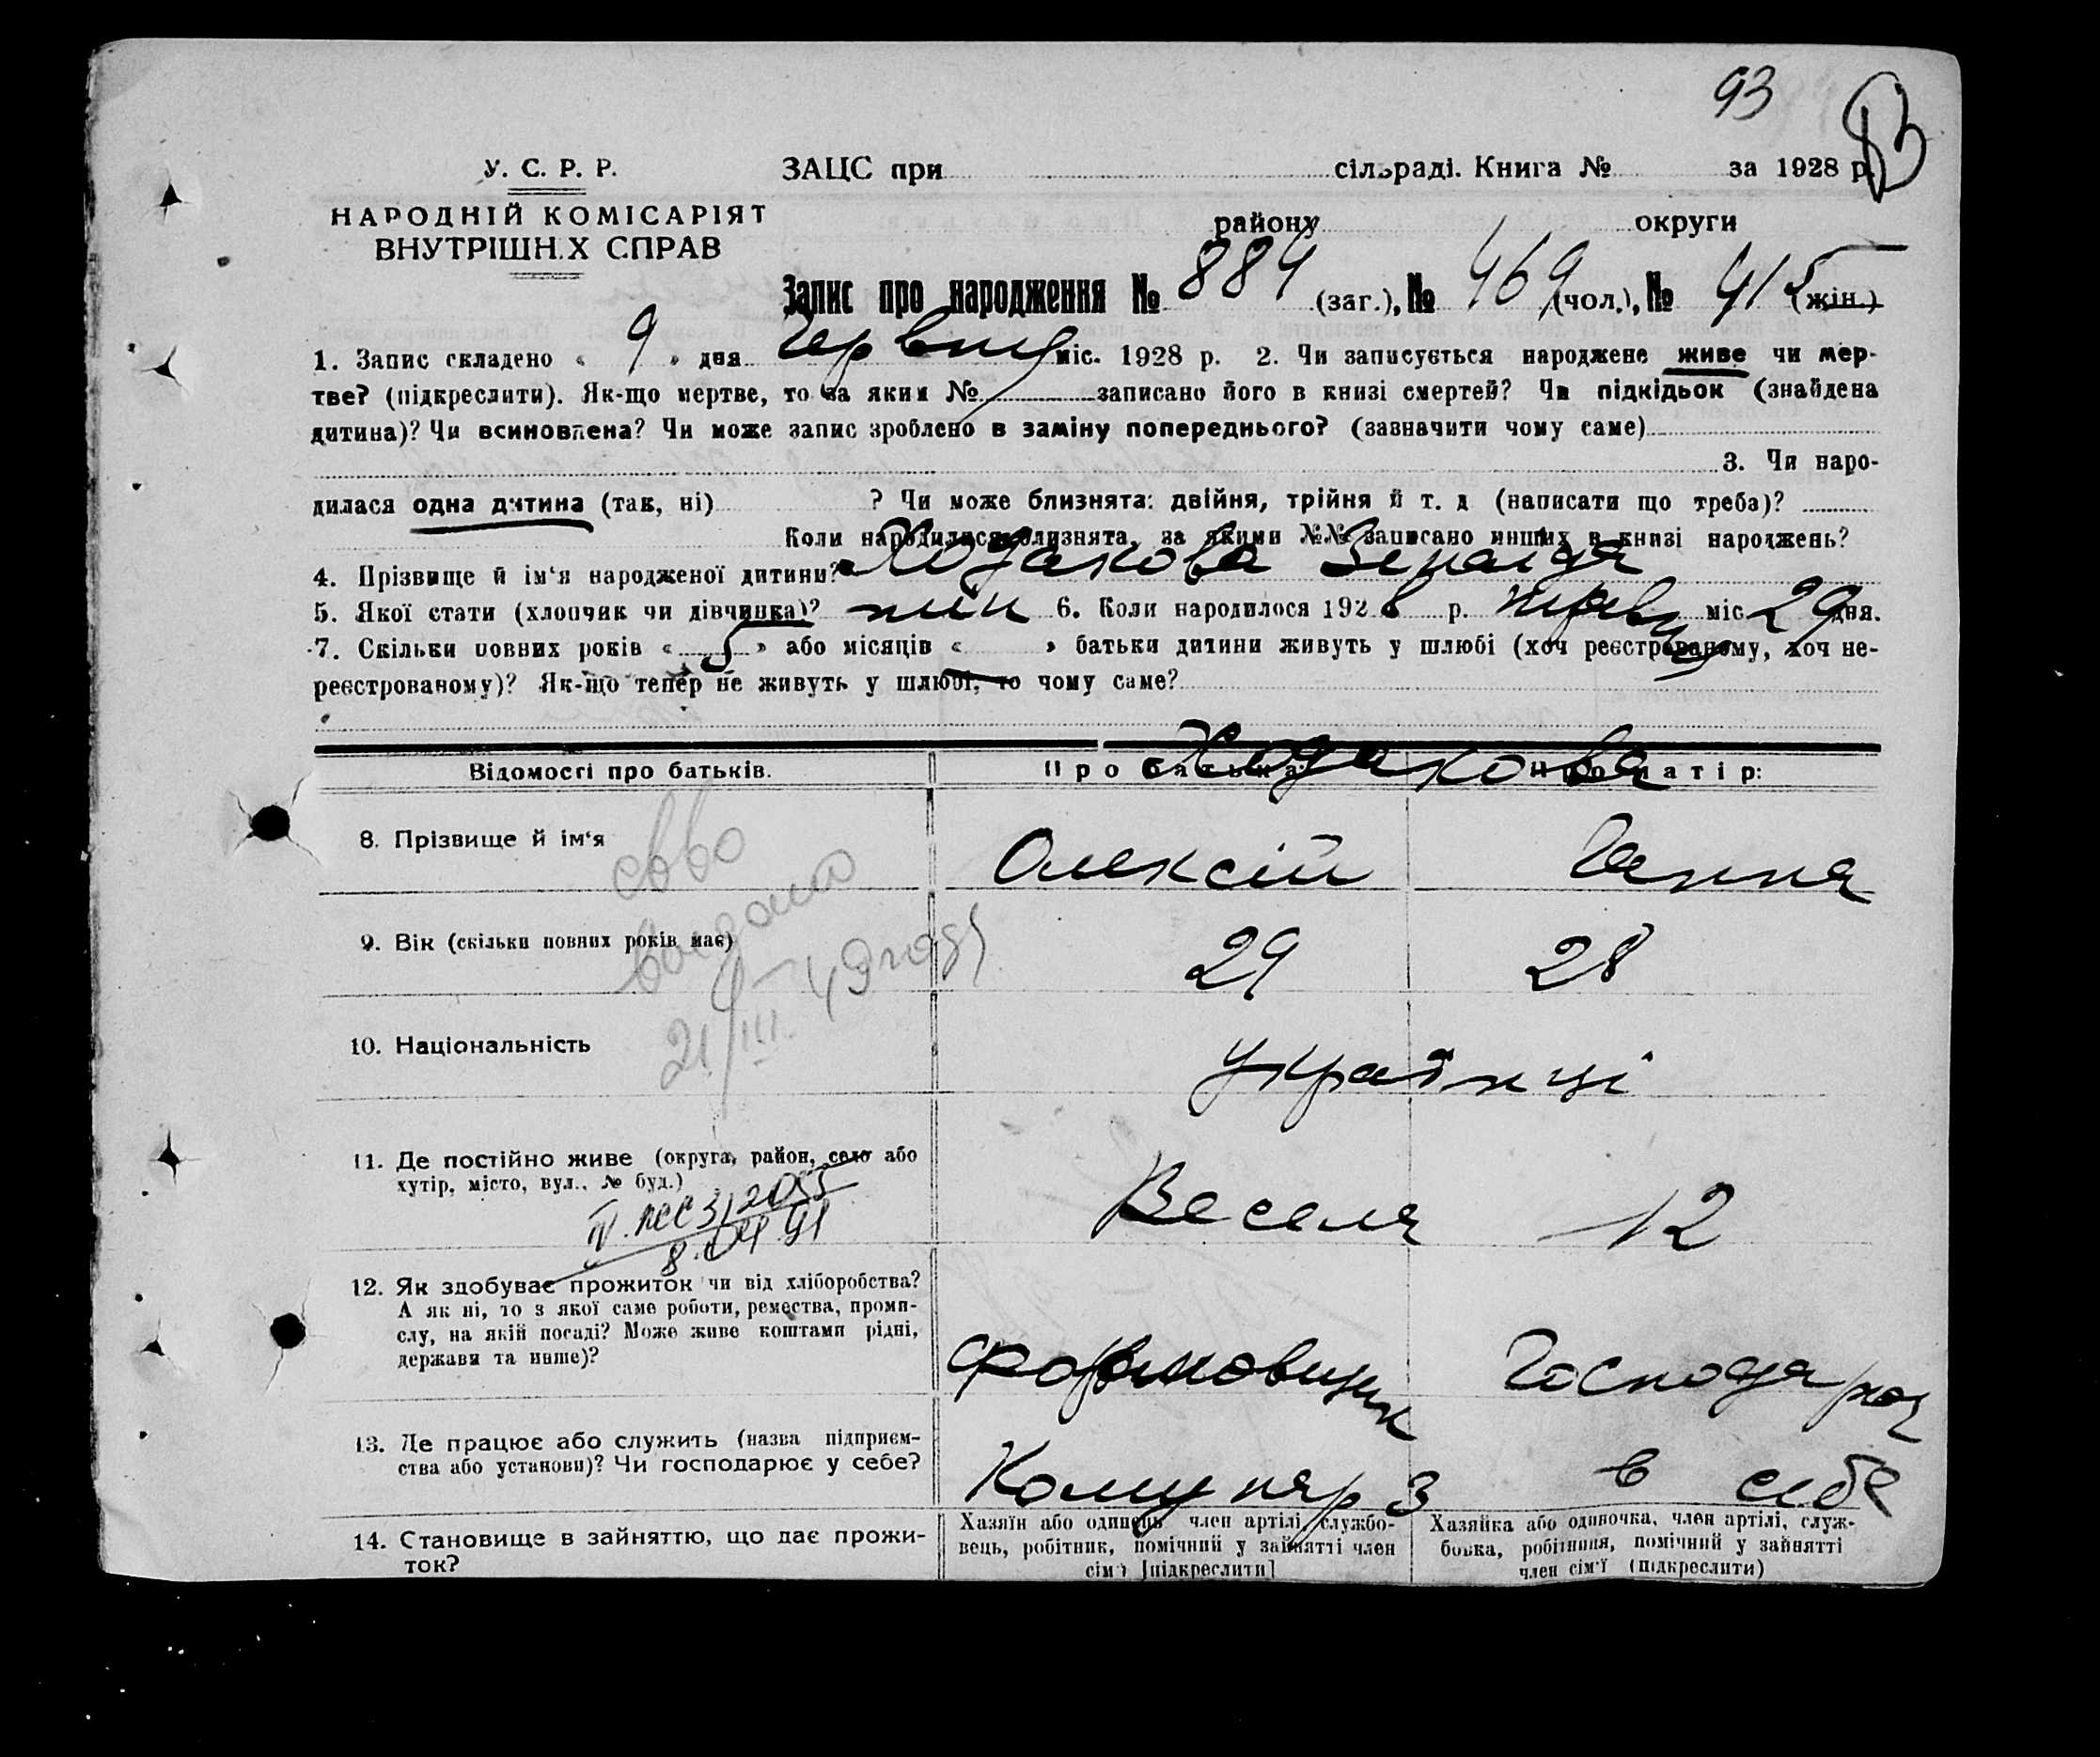 93
У. С. Р. Р.
ЗАЦС при сільраді. Книга № за 1928 р.
НАРОДНІЙ КОМІСАРІЯТ
ВНУТРІШН.Х СПРАВ
району округи
Запис про народження № 884 (заг.), № 469 (чол.), № 415 (жін.)
1. Запис складено « 9 » дня Червня міс. 1928 р. 2. Чи записується народжене живе чи мер-
тве? (підкреслити). Як-що мертве, то за яким № записано його в книзі смертей? Чи підкідьок (знайдена
дитина)? Чи всиновлена? Чи може запис зроблено в заміну попереднього? (зазначити чому саме)
3. Чи наро-
дилася одна дитина (так, ні) ? Чи може близнята: двійня, трійня й т. д (написати що треба)?
Коли народилися близнята, за якими №№ записано инших в книзі народжень?
4. Прізвище й ім‘я народженої дитини? Ходакова Зенаіда
5. Якої статі (хлопчик чи дівчинка)? жін 6. Коли народилося 1928 р. червня міс. 29 дня.
7. Скільки повних років « 5 » або місяців « » батьки дитини живуть у шлюбі (хоч реєстрованому, хоч не-
реєстрованому)? Як-що тепер не живуть у шлюбі, то чому саме?
Ходакова
Відомості про батьків. Про батька: Про матір:
8. Прізвище й ім‘я Олексій Ганна
9. Вік (скільки повних років має) 29 28
21/III. 49 году
10. Національність українці
11. Де постійно живе (округа, район, село або
хутір, місто, вул., № буд.) Весела 12
8.04 91
12. Як здобуває прожиток чи від хліборобства?
А як ні, то з якої саме роботи, ремества, проми-
слу, на якій посаді? Може живе коштами рідні,
держави та инше)? формовщик Господарка
13. Де працює або служить (назва підприєм-
ства або установи)? Чи господарює у себе? Комунар З в себе
14. Становище в зайняттю, що дає прожи-
ток?
Хазяїн або одинець член артілі, службо-
вець, робітник, помічний у зайнятті член
сім‘ї [підкреслити]
Хазяйка або одиночка, член артілі, служ-
бовка, робітниця, помічний у зайнятті
член сім‘ї (підкреслити)